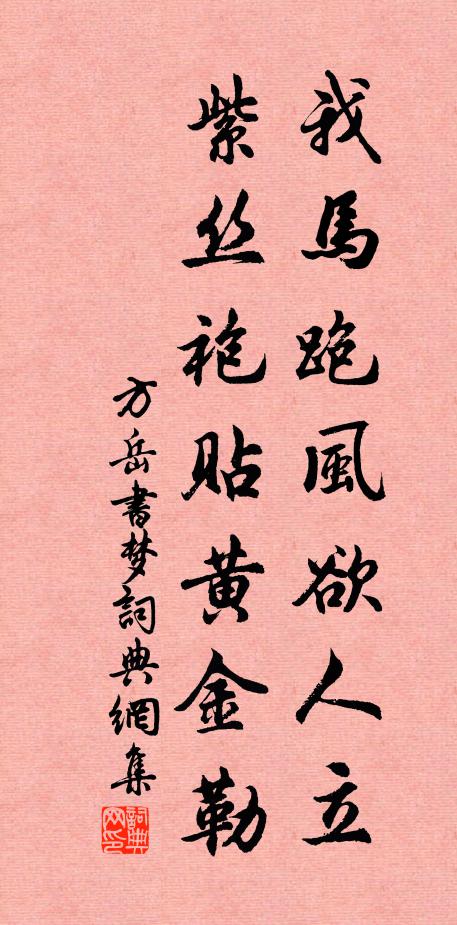 我馬跑風欲人立
紫丝袍贴黄金勒
方岳書梦詞典網集
詞典网印